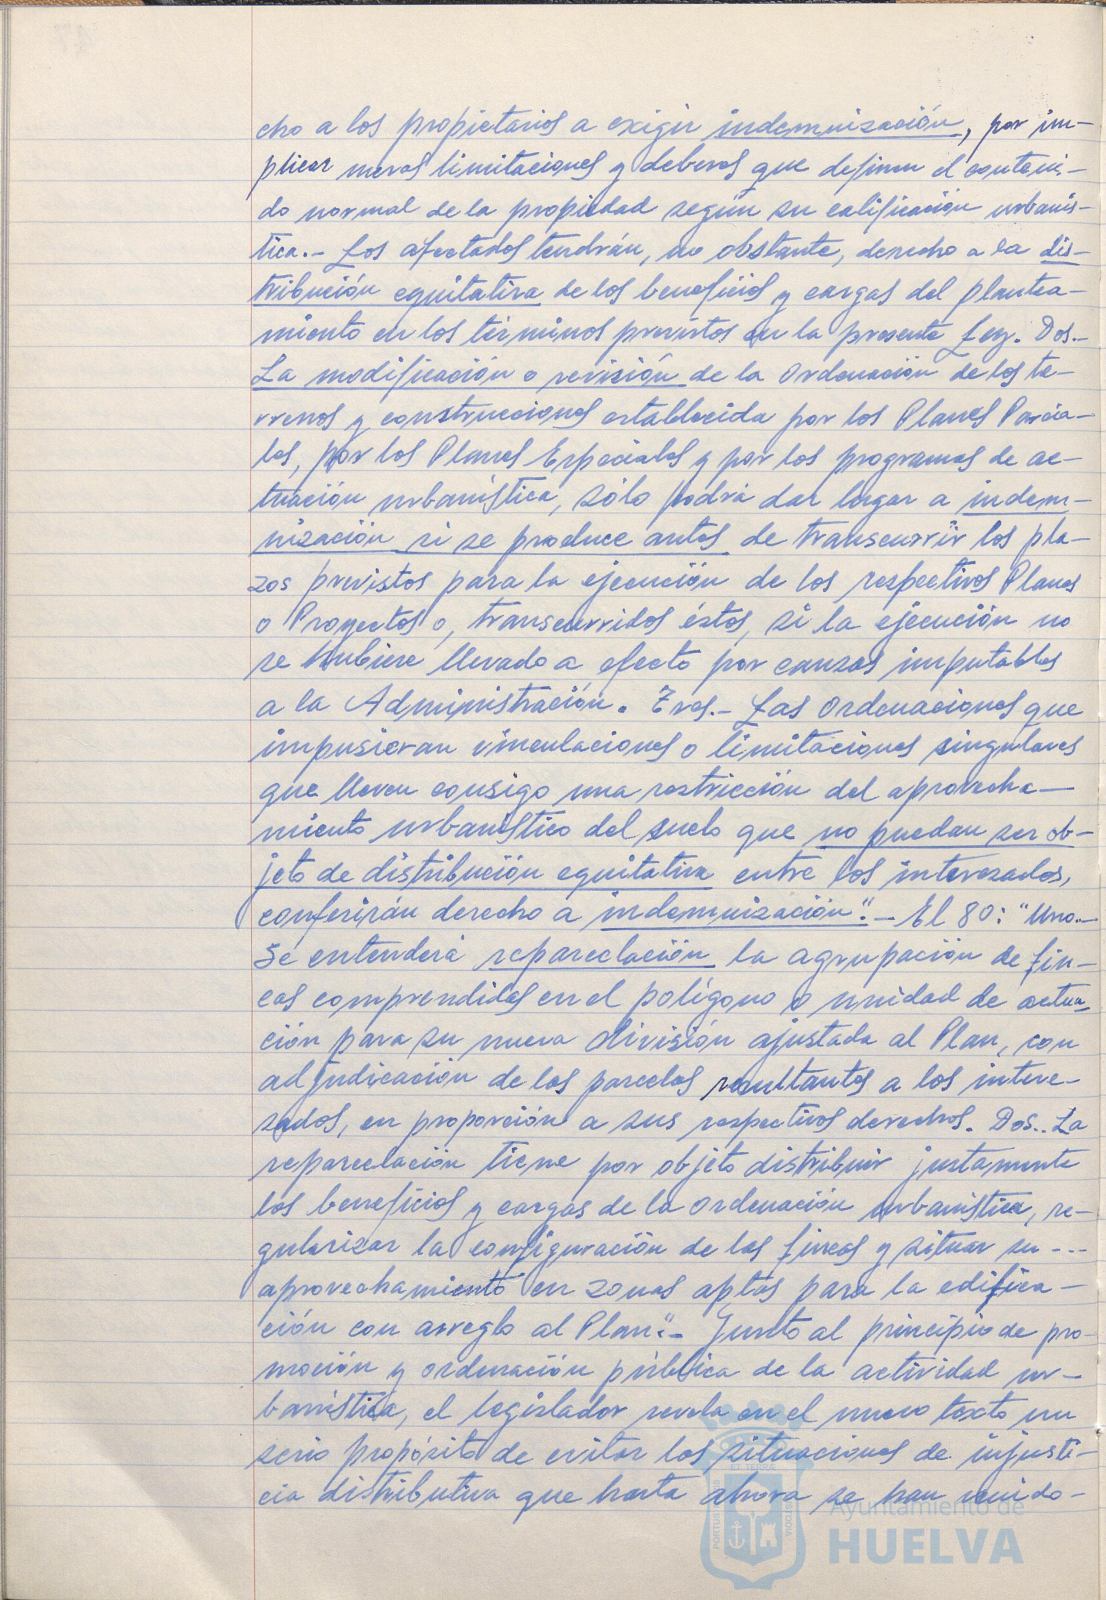 cho a los propietarios a exigir indemnización, por im-
plicar meras limitaciones y deberes que definen el conteni-
do normal de la propiedad según su calificación urbanís-
tica.- Los afectados tendrán, no obstante, derecho a la dis-
tribución equitativa de los beneficios y cargas del planea-
miento en los términos previstos en la presente Ley. Dos.-
La modificación o revisión de la Ordenación de los te-
rrenos y construcciones establecida por los Planes Parcia-
les, por los Planes Especiales y por los programas de ac-
tuación urbanística, sólo podrá dar lugar a indem-
nización si se produce antes de transcurrir los pla-
zos previstos para la ejecución de los respectivos Planes
o Proyectos o, transcurridos éstos, si la ejecución no
se hubiere llevado a efecto por causas imputables
a la Administración. Tres.- Las Ordenaciones que
impusieran vinculaciones o limitaciones singulares
que lleven consigo una restricción del aprovecha-
miento urbanístico del suelo que no puedan ser ob-
jeto de distribución equitativa entre los interesados,
conferirán derecho a indemnización".- El 80: "Uno.-
Se entenderá reparcelación la agrupación de fin-
cas comprendidas en el polígono o unidad de actua-
ción para su nueva división ajustada al Plan, con
adjudicación de las parcelas resultantes a los intere-
sados, en proporción a sus respectivos derechos. Dos.. La
reparcelación tiene por objeto distribuir justamente
los beneficios y cargas de la Ordenación urbanística, re-
gularizar la configuración de las fincas y situar su ---
aprovechamiento en zonas aptas para la edifica-
ción con arreglo al Plan".- Junto al principio de pro-
moción y ordenación pública de la actividad ur-
banística, el legislador revela en el nuevo texto un
serio propósito de evitar las situaciones de injusti-
cia distributiva que hasta ahora se han venido-
Ayuntamiento de
HUELVA